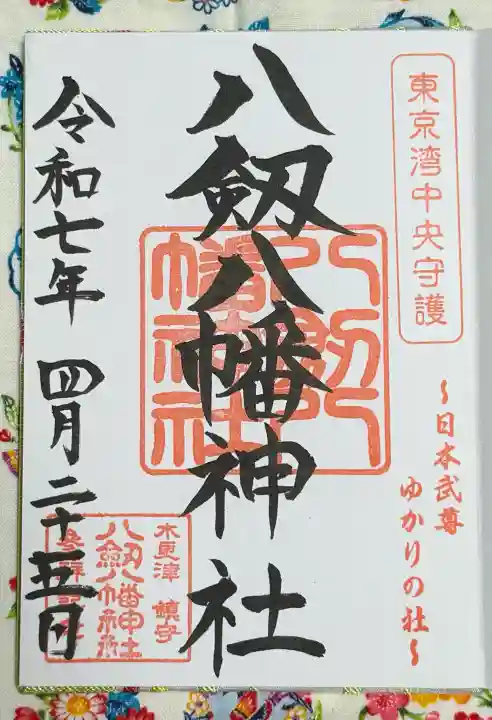 東京湾中央守護
～日本武尊
ゆかりの社～
八剱八幡神社
木更津 鎮守
八劔八幡神社
令和七年 四月二十五日